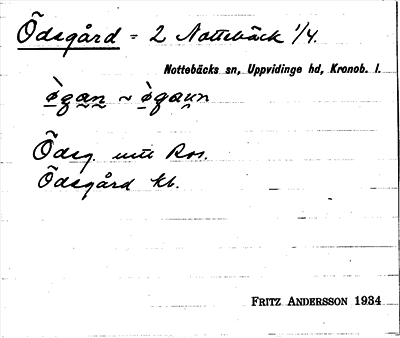 Ödsgård = 2 Nottebäck 1/4.
Nottebäcks sn, Uppvidinge hd, Kronob. l.
Ödsg. utt Ros.
Ödsgård kb.
FRITZ ANDERSSON 1934